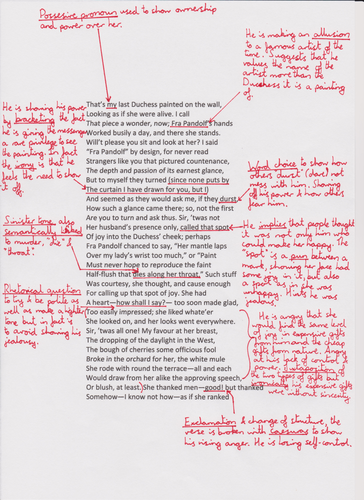 Possesive pronoun used to show ownership
and power over her.
He is making an allusion
to a famous artist of the
time. Suggests that he
values the name of the
artist more than the
Duchess it is a painting
of.
That's my last Duchess painted on the wall,
Looking as if she were alive. I call
That piece a wonder, now; Fra Pandolf's hands
Worked busily a day, and there she stands.
Will't please you sit and look at her? I said
"Fra Pandolf" by design, for never read
Strangers like you that pictured countenance,
The depth and passion of its earnest glance,
But to myself they turned (since none puts by
The curtain I have drawn for you, but I)
And seemed as they would ask me, if they durst,
How such a glance came there; so, not the first
Are you to turn and ask thus. Sir, 'twas not
Her husband's presence only, called that spot
Of joy into the Duchess' cheek; perhaps
Fra Pandolf chanced to say, "Her mantle laps
Over my lady's wrist too much," or "Paint
Must never hope to reproduce the faint
Half-flush that dies along her throat." Such stuff
Was courtesy, she thought, and cause enough
For calling up that spot of joy. She had
A heart—how shall I say?— too soon made glad,
Too easily impressed; she liked whate'er
She looked on, and her looks went everywhere.
Sir, 'twas all one! My favour at her breast,
The dropping of the daylight in the West,
The bough of cherries some officious fool
Broke in the orchard for her, the white mule
She rode with round the terrace—all and each
Would draw from her alike the approving speech,
Or blush, at least. She thanked men—good! but thanked
Somehow—I know not how—as if she ranked
He is showing his power
by bracketing the fact
he is giving the messenger
a rare privilege to see
the painting. In fact
the irony is that he
feels the need to show
it off.
Sinister tone, also
semantically linked
to murder. "die" &
"throat".
Rhetorical question
to try & be polite as
well as make a lighter
tone but in fact is
to avoid showing his
jealousy.
Word choice to show how
others 'durst' (dare) not
mess with him. Showing
off his power & how others
fear him.
He implies that people thought
it was not only him who
could make her happy. The
"spot" is a pun between a
mark, showing her face had
some joy in it but also
a spot as in she was
unhappy. Hints he was
'jealous.'
He is angry that she
would find the same level
of joy in expensive gifts
from him and the cheap
gifts from nature. Angry
at his lack of control &
power. Juxtaposition of
the two types of gifts but
ironically his expensive gifts
were without sincerity.
Exclamation & change of structure, the
verse is broken with caesuras to show
his rising anger. He is losing self-control.